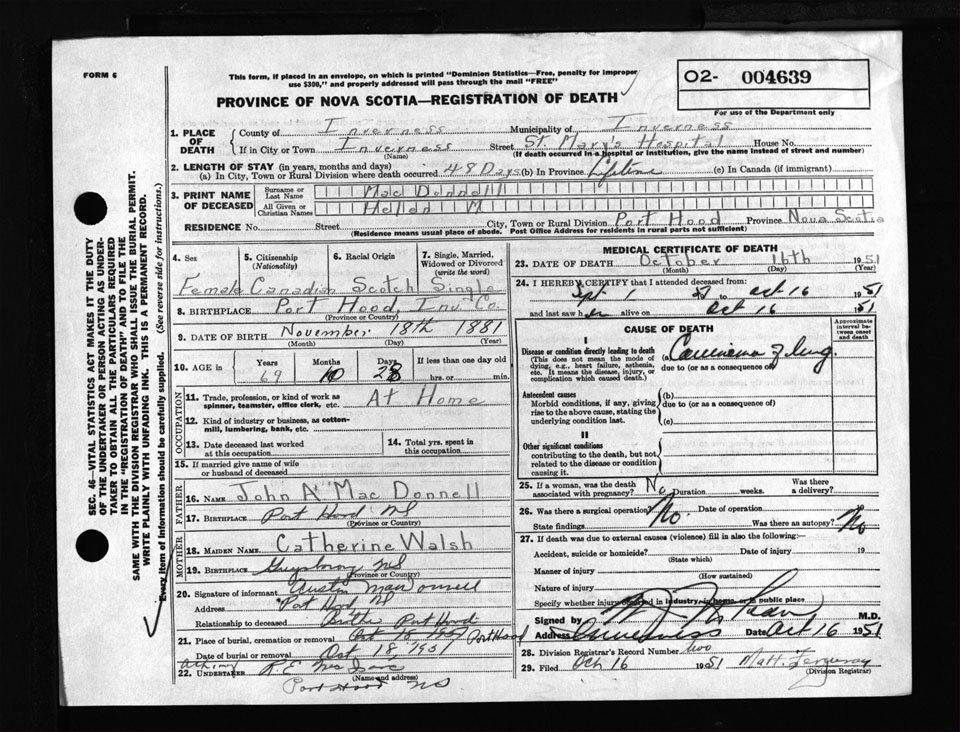 FORM 6
This form, if placed in an envelope, on which is printed "Dominion Statistics—Free, penalty for improper
use $300," and properly addressed will pass through the mail "FREE"
O2- 004639
For use of the Department only
PROVINCE OF NOVA SCOTIA—REGISTRATION OF DEATH
1. PLACE OF DEATH { County of Inverness Municipality of Inverness
If in City or Town Inverness (Name) Street St. Mary's Hospital House No.
(If death occurred in a hospital or institution, give the name instead of street and number)
2. LENGTH OF STAY (in years, months and days)
(a) In City, Town or Rural Division where death occurred 48 Days (b) In Province Lifetime (c) In Canada (if immigrant)
3. PRINT NAME OF DECEASED { Surname or Last Name Mac Donnell
All Given or Christian Names Hellen M
RESIDENCE No. Street City, Town or Rural Division Port Hood Province Nova Scotia
(Residence means usual place of abode. Post Office Address for residents in rural parts not sufficient)
4. Sex 5. Citizenship (Nationality) 6. Racial Origin 7. Single, Married, Widowed or Divorced (write the word)
Female Canadian Scotch Single
8. BIRTHPLACE Port Hood Inv. Co.
(Province or Country)
9. DATE OF BIRTH November 18th 1881
(Month) (Day) (Year)
10. AGE in { Years Months Days If less than one day old
69 10 28 hrs. or min.
OCCUPATION
11. Trade, profession, or kind of work as spinner, teamster, office clerk, etc. At Home
12. Kind of industry or business, as cotton-mill, lumbering, bank, etc.
13. Date deceased last worked at this occupation 14. Total yrs. spent in this occupation
15. If married give name of wife or husband of deceased
FATHER
16. NAME John A. Mac Donnell
17. BIRTHPLACE Port Hood NS
(Province or Country)
MOTHER
18. MAIDEN NAME Catherine Walsh
19. BIRTHPLACE Guysboro NS
(Province or Country)
20. Signature of informant Austin MacDonnell
Address Port Hood NS
Relationship to deceased Port Hood
21. Place of burial, cremation or removal Oct 18, 1951 Port Hood
Date of burial or removal Oct 18, 1951
22. UNDERTAKER R.E. McIsaac
(Name and address)
Port Hood NS
MEDICAL CERTIFICATE OF DEATH
23. DATE OF DEATH October 16th 1951
(Month) (Day) (Year)
24. I HEREBY CERTIFY that I attended deceased from:
Sept 1 Oct 16 1951
and last saw her alive on Oct 16 1951
CAUSE OF DEATH
Approximate interval between onset and death
I
Disease or condition directly leading to death (a) Carcinoma of lung
(This does not mean the mode of dying, e.g., heart failure, asthenia, etc. It means the disease, injury, or complication which caused death.)
due to (or as a consequence of)
Antecedent causes (b)
Morbid conditions, if any, giving rise to the above cause, stating the underlying condition last.
due to (or as a consequence of)
(c)
II
Other significant conditions
contributing to the death, but not related to the disease or condition causing it.
25. If a woman, was the death associated with pregnancy? No Duration weeks. Was there a delivery?
26. Was there a surgical operation? No. Date of operation 19
State findings Was there an autopsy? No
27. If death was due to external causes (violence) fill in also the following:
Accident, suicide or homicide? Date of injury 19
(State which)
Manner of injury
(How sustained)
Nature of injury
Specify whether injury occurred in industry, in home, or in public place
Signed by M.D.
Address Inverness Date Oct 16 1951
28. Division Registrar's Record Number two
29. Filed Oct 16 1951 Matt. Ferguson
(Division Registrar)
SEC. 46—VITAL STATISTICS ACT MAKES IT THE DUTY
OF THE UNDERTAKER OR PERSON ACTING AS UNDER-
TAKER TO OBTAIN ALL THE PARTICULARS REQUIRED
IN THE "REGISTRATION OF DEATH" AND TO FILE THE
SAME WITH THE DIVISION REGISTRAR WHO SHALL ISSUE THE BURIAL PERMIT.
WRITE PLAINLY WITH UNFADING INK. THIS IS A PERMANENT RECORD.
Every item of information should be carefully supplied. (See reverse side for instructions.)